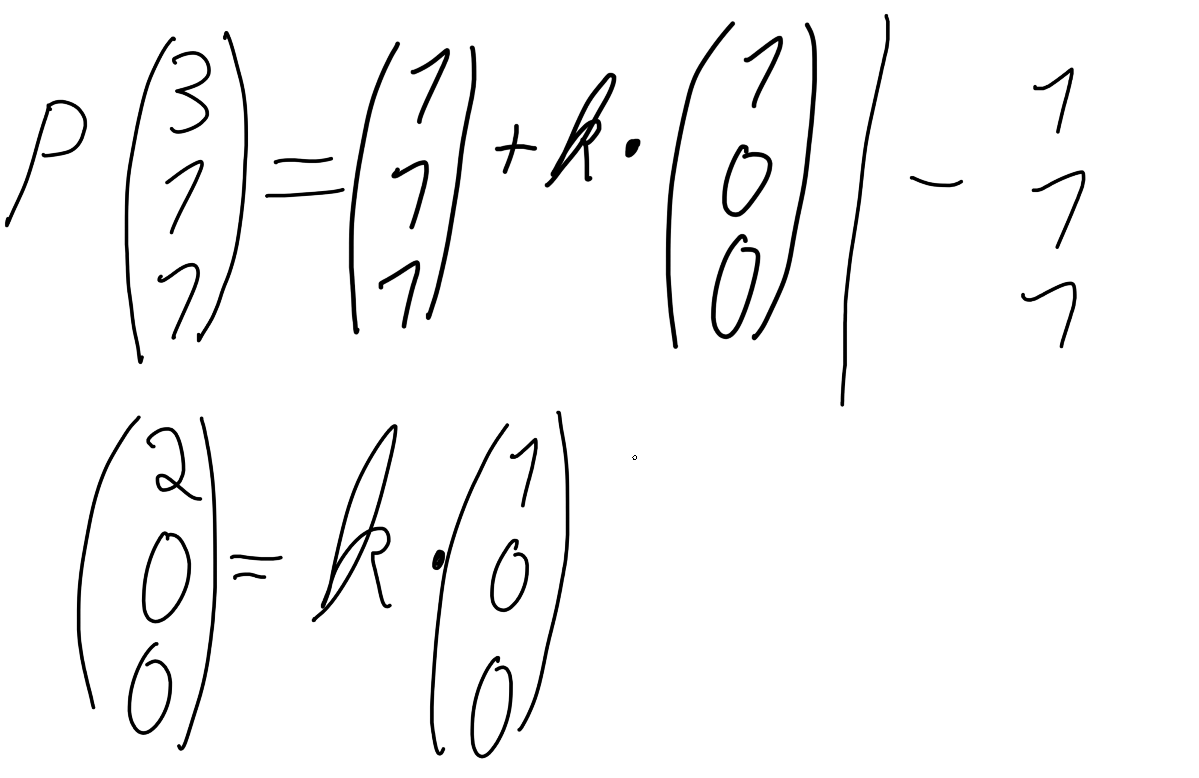 P (3 1 1) = (1 1 1) + k · (1 0 0) | - 1 1 1
(2 0 0) = k · (1 0 0)